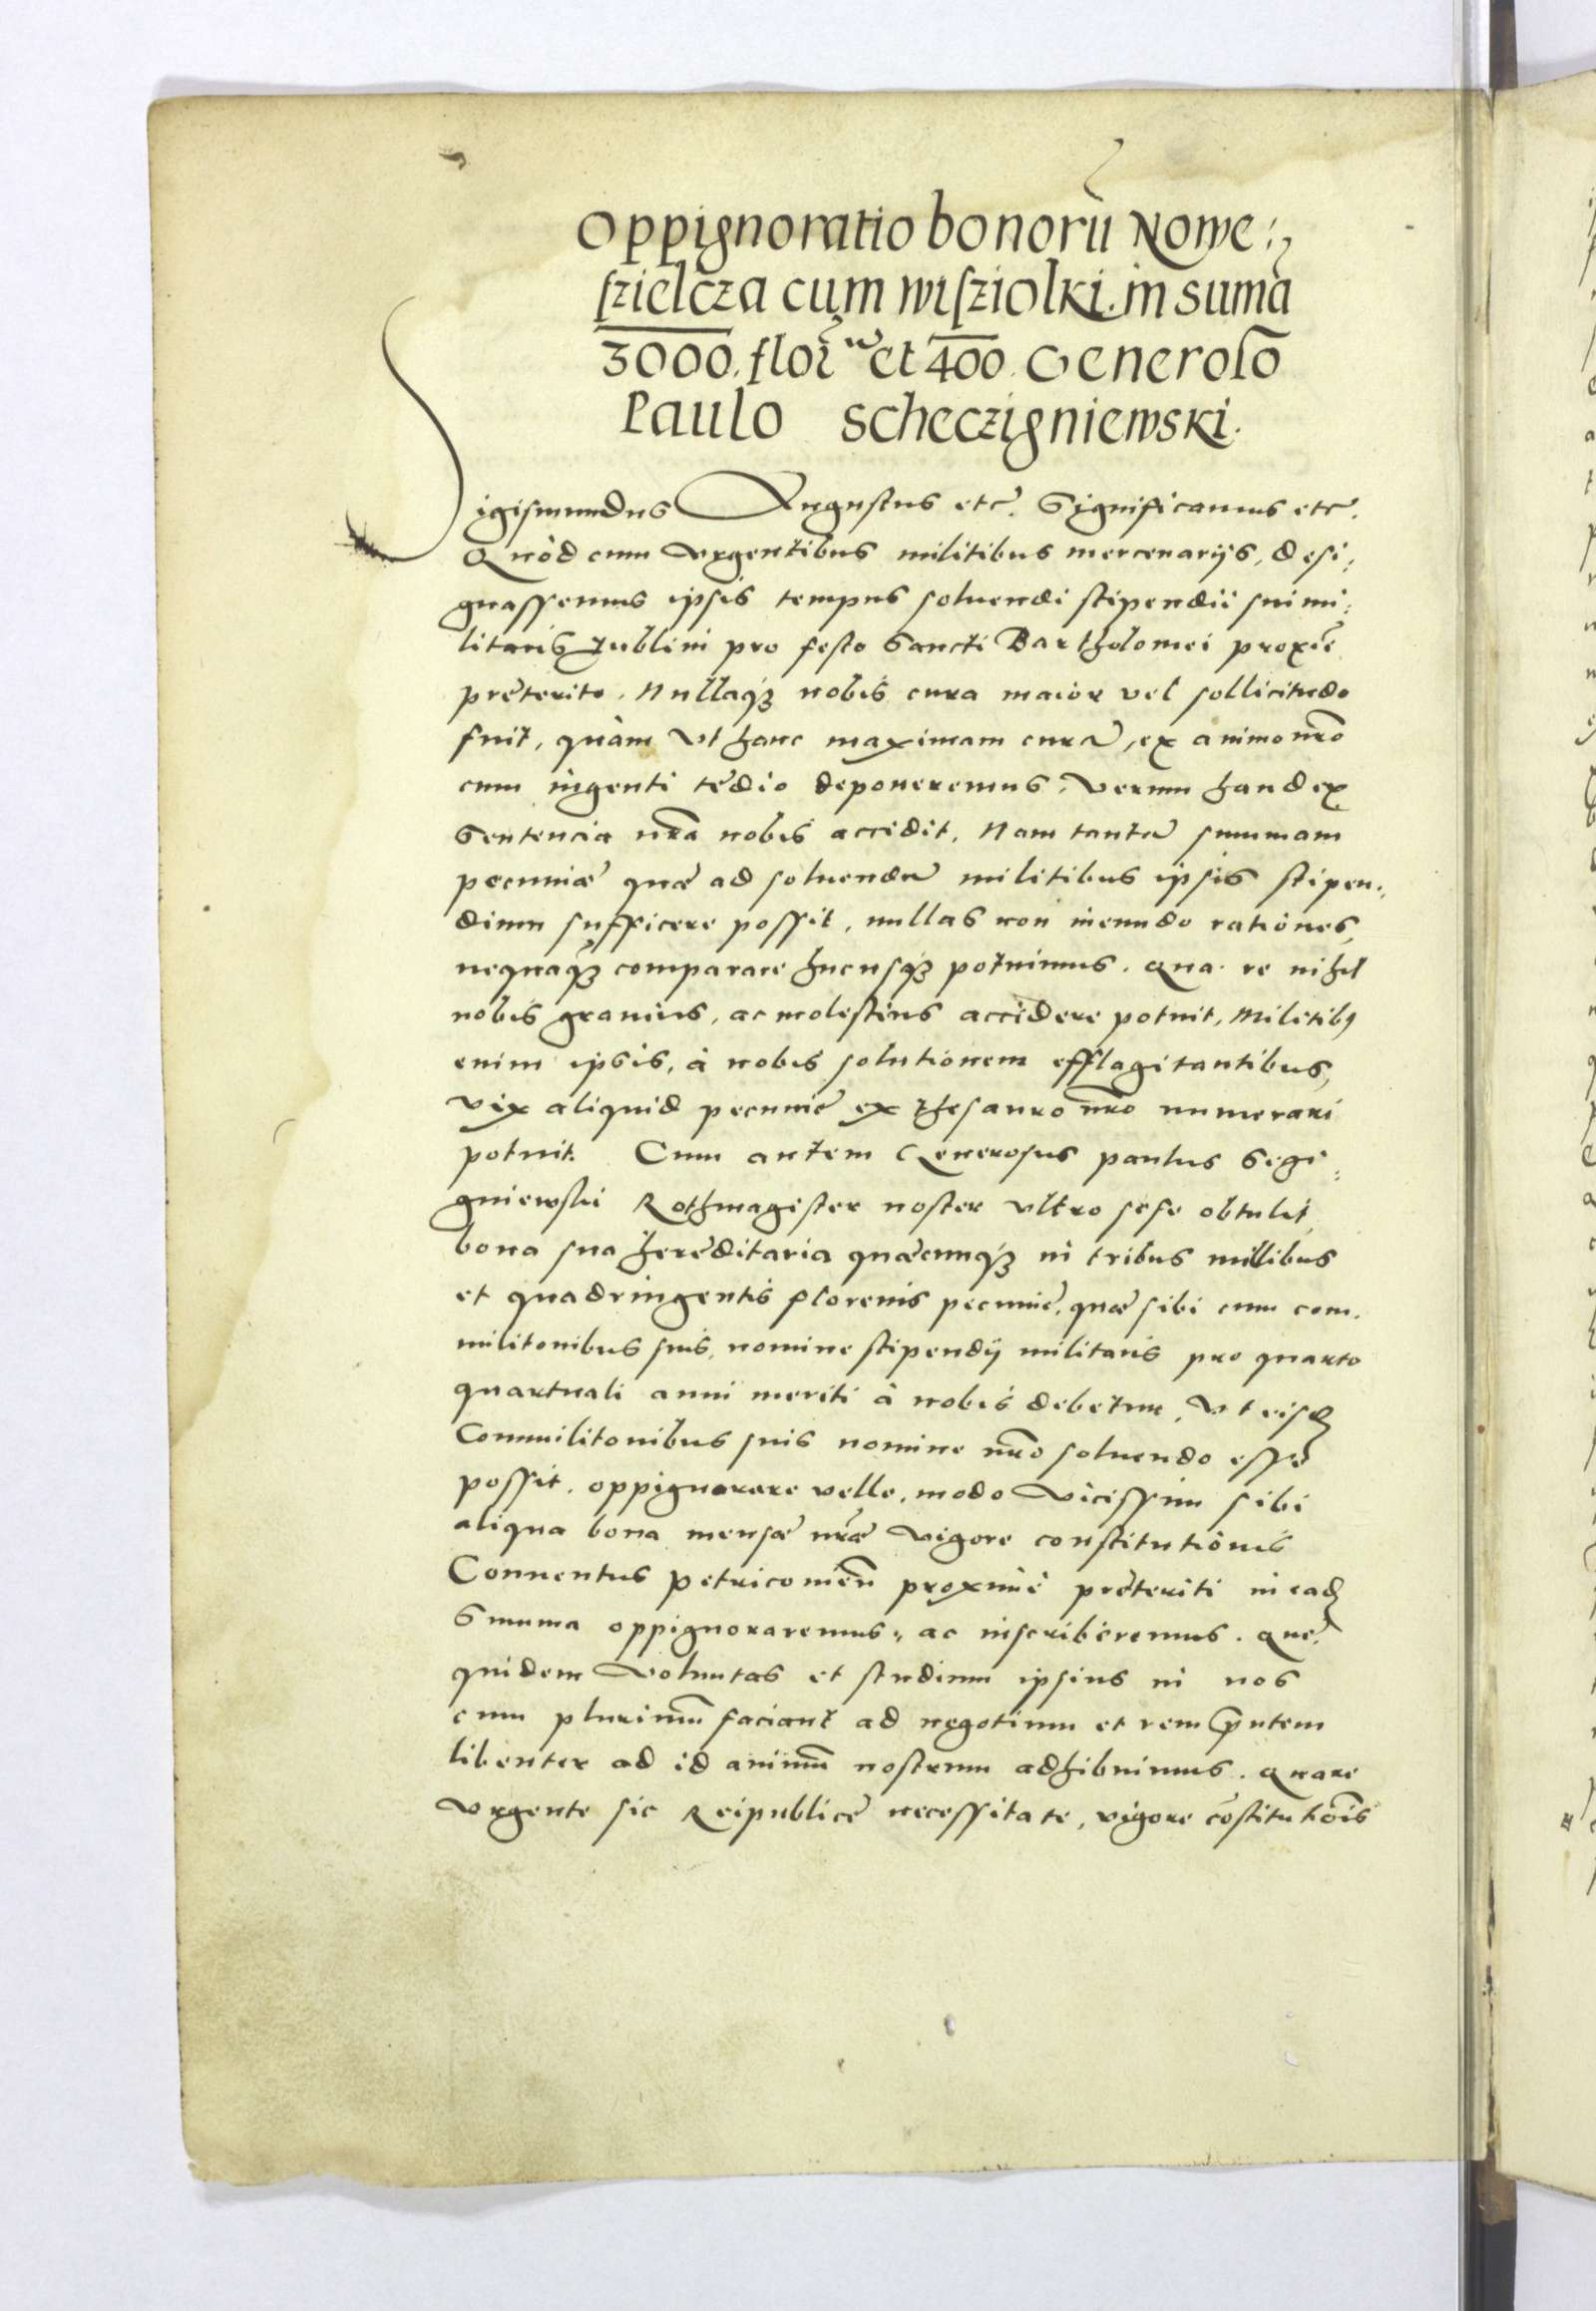 Oppignoratio bonorū Nowe:
szielcza cum wisziolki. in sumā
3000. flor et 400. Generoso
Paulo Scheczigniewski.
Sigismundus Augustus etc̄. Significamus etc̄.
Quòd cum vrgentibus militibus mercenarijs, desi:
gnassemus ipsis tempus soluendi stipendii sui mi:
litaris Lublini pro festo Sancti Bartholomei proxīe
prẹterito. Nullaqꝫ nobis cura maior vel sollicitudo
fuit, quàm vt hanc maximam curā, ex animo nr̄o
cum ingenti tẹdio deponeremus. Verum haud ex
Sentencia nr̄a nobis accidit. Nam tantā summam
pecuniæ quæ ad soluendū militibus ipsis stipen:
dium sufficere possit, nullas non ineundo rationes,
nequaqꝫ comparare hucusqꝫ potuimus. Qua re nihil
nobis grauius, ac molestius accidere potuit, Militibꝰ
enim ipsis, à nobis solutionem efflagitantibus,
vix aliquid pecuniẹ ex thesauro nr̄o numerari
potuit. Cum autem Generosus Paulus Segi:
gniewski Rothmagister noster vltro sese obtulit,
bona sua hereditaria quæcunqꝫ in tribus millibus
et quadringentis florenis pecuniẹ, quæ sibi cum com.
militonibus suis, nomine stipendij militaris pro quarto
quartuali anni meriti à nobis debetur, vt eisdē
Commilitonibus suis nomine nr̄o soluendo esse
possit, oppignorare velle, modo vicissim sibi
aliqua bona mensæ nr̄æ vigore constitutionis
Conuentus Petricouień proximè prẹteriti in eadē
Summa oppignoraremus, ac inscriberemus. Quẹ
quidem voluntas et studium ipsius in nos
cum plurimū faciant ad negotium et rem p̄ntem
libenter ad id animū nostrum adhibuimus. Quare
vrgente sic Reipublicẹ necessitate, vigore cōstitutiōis